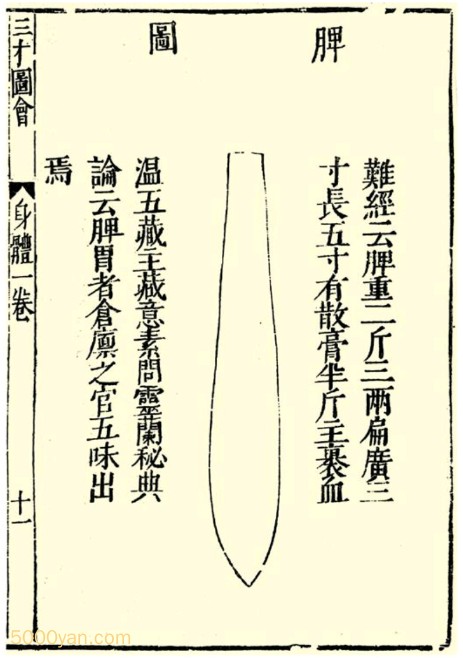 脾圖
難經云脾重二斤三兩扁廣三
寸長五寸有散膏半斤主裹血
温五藏主藏意素問靈蘭秘典
論云脾胃者倉廩之官五味出
焉
三才圖會
身體一卷
十一
5000yan.com